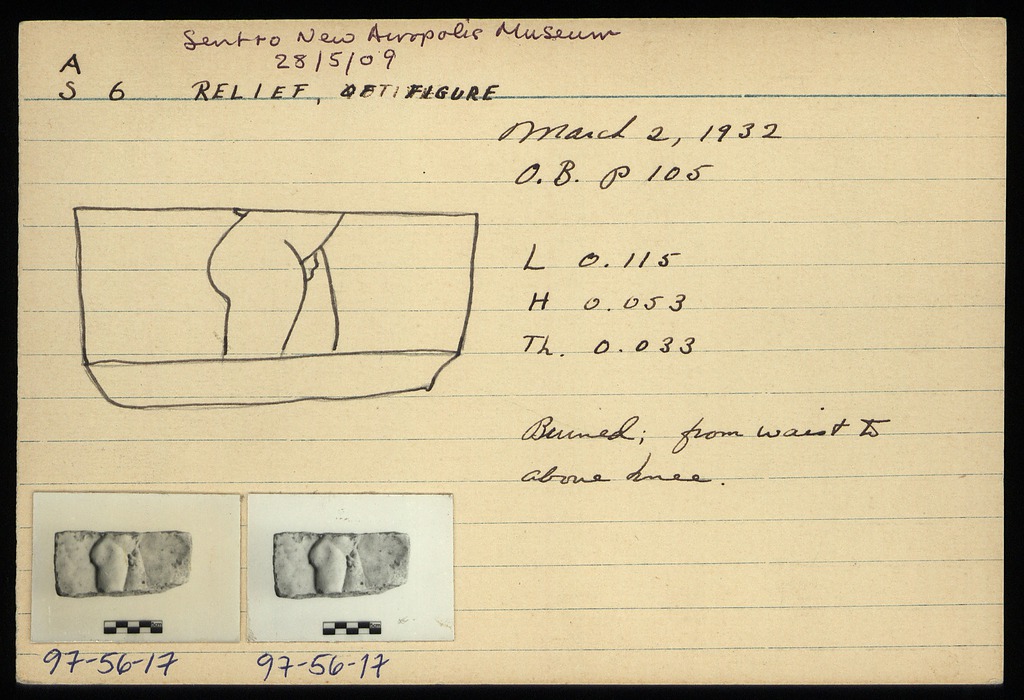 Sent to New Acropolis Museum
28/5/09
A
S 6 RELIEF, FIGURE
March 2, 1932
O.B. p 105
L 0.115
H 0.053
Th. 0.033
Burned; from waist to
above knee.
97-56-17 97-56-17